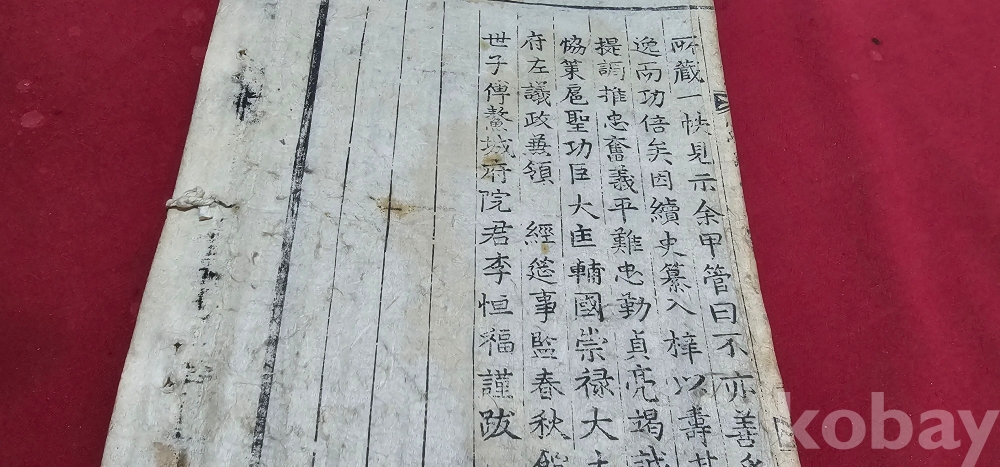 所藏一帙見示余甲管曰不亦善乎
逸而功倍矣因續史纂入梓以壽其
提調推忠奮義平難忠勤貞亮竭誠
恊策扈聖功臣大匡輔國崇祿大夫
府左議政兼領 經筵事監春秋館
世子傅鰲城府院君李恒福謹跋
kobay